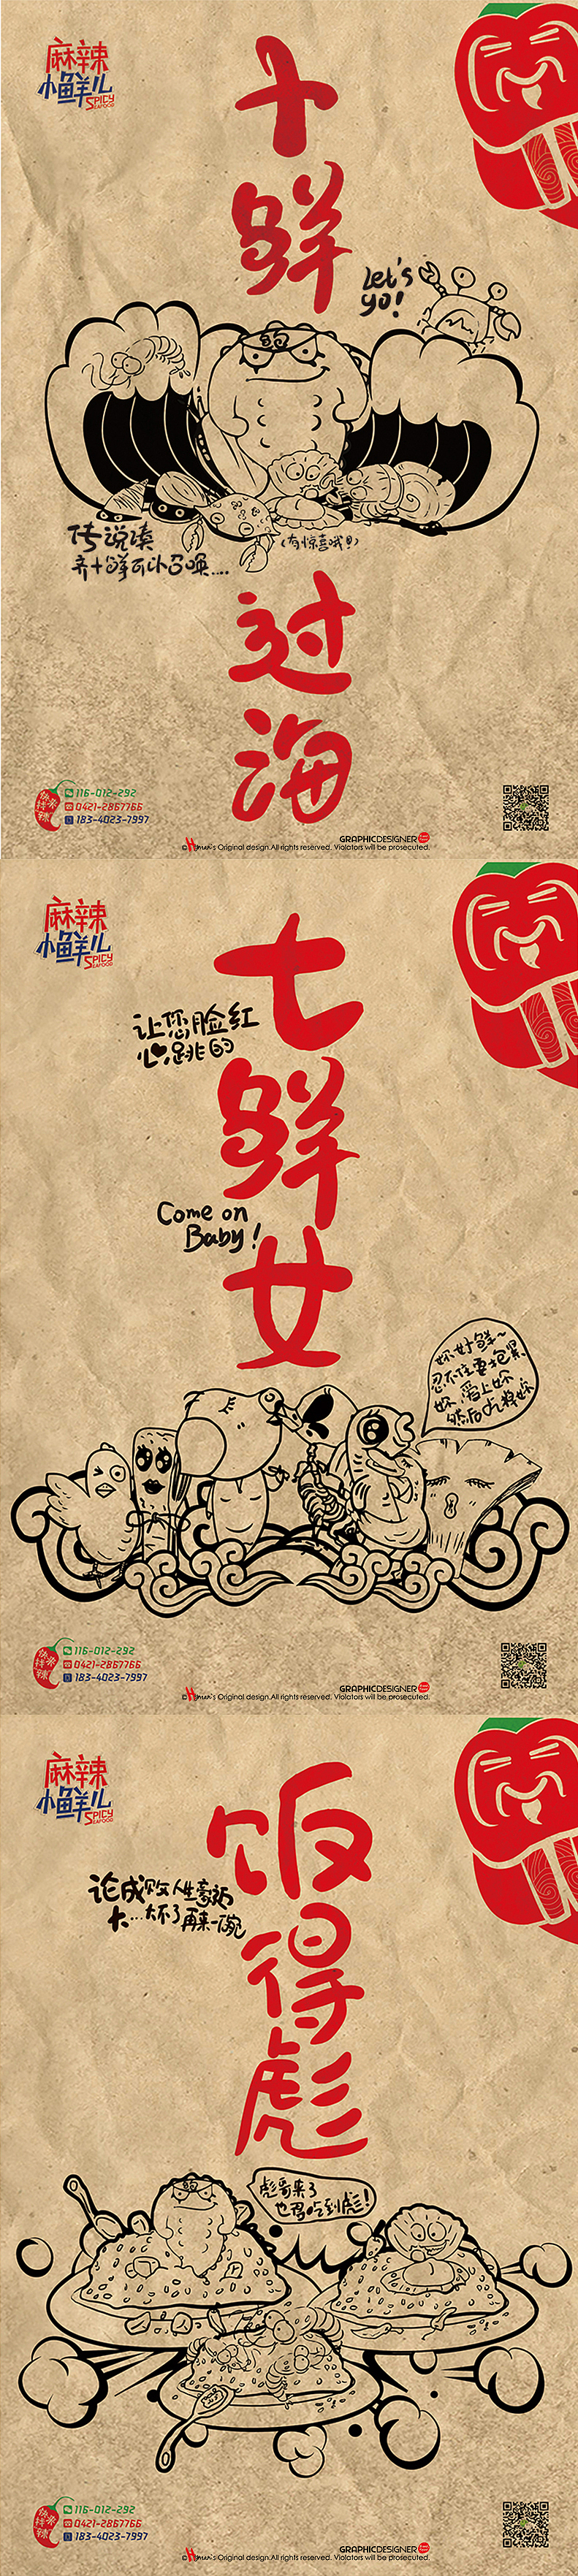 麻辣
小鲜儿
SPICY
SEAFOOD
十
鲜
Let's
yo!
传说凑
齐十鲜可以召唤....
(有惊喜哦!!)
过
海
快来
找辣
116-012-292
0421-2867766
183-4023-7997
GRAPHICDESIGNER
's Original design.All rights reserved. Violators will be prosecuted.
麻辣
小鲜儿
SPICY
SEAFOOD
七
让您脸红
心跳的
鲜
Come on
Baby!
女
妳好鲜~
忍不住要抱累
妳,爱上妳
然后吃掉妳
快来
找辣
116-012-292
0421-2867766
183-4023-7997
GRAPHICDESIGNER
's Original design.All rights reserved. Violators will be prosecuted.
麻辣
小鲜儿
SPICY
SEAFOOD
饭
论成败人生豪迈
大...大不了再来一碗
得
彪
彪哥来了
也得吃到彪!
快来
找辣
116-012-292
0421-2867766
183-4023-7997
GRAPHICDESIGNER
's Original design.All rights reserved. Violators will be prosecuted.